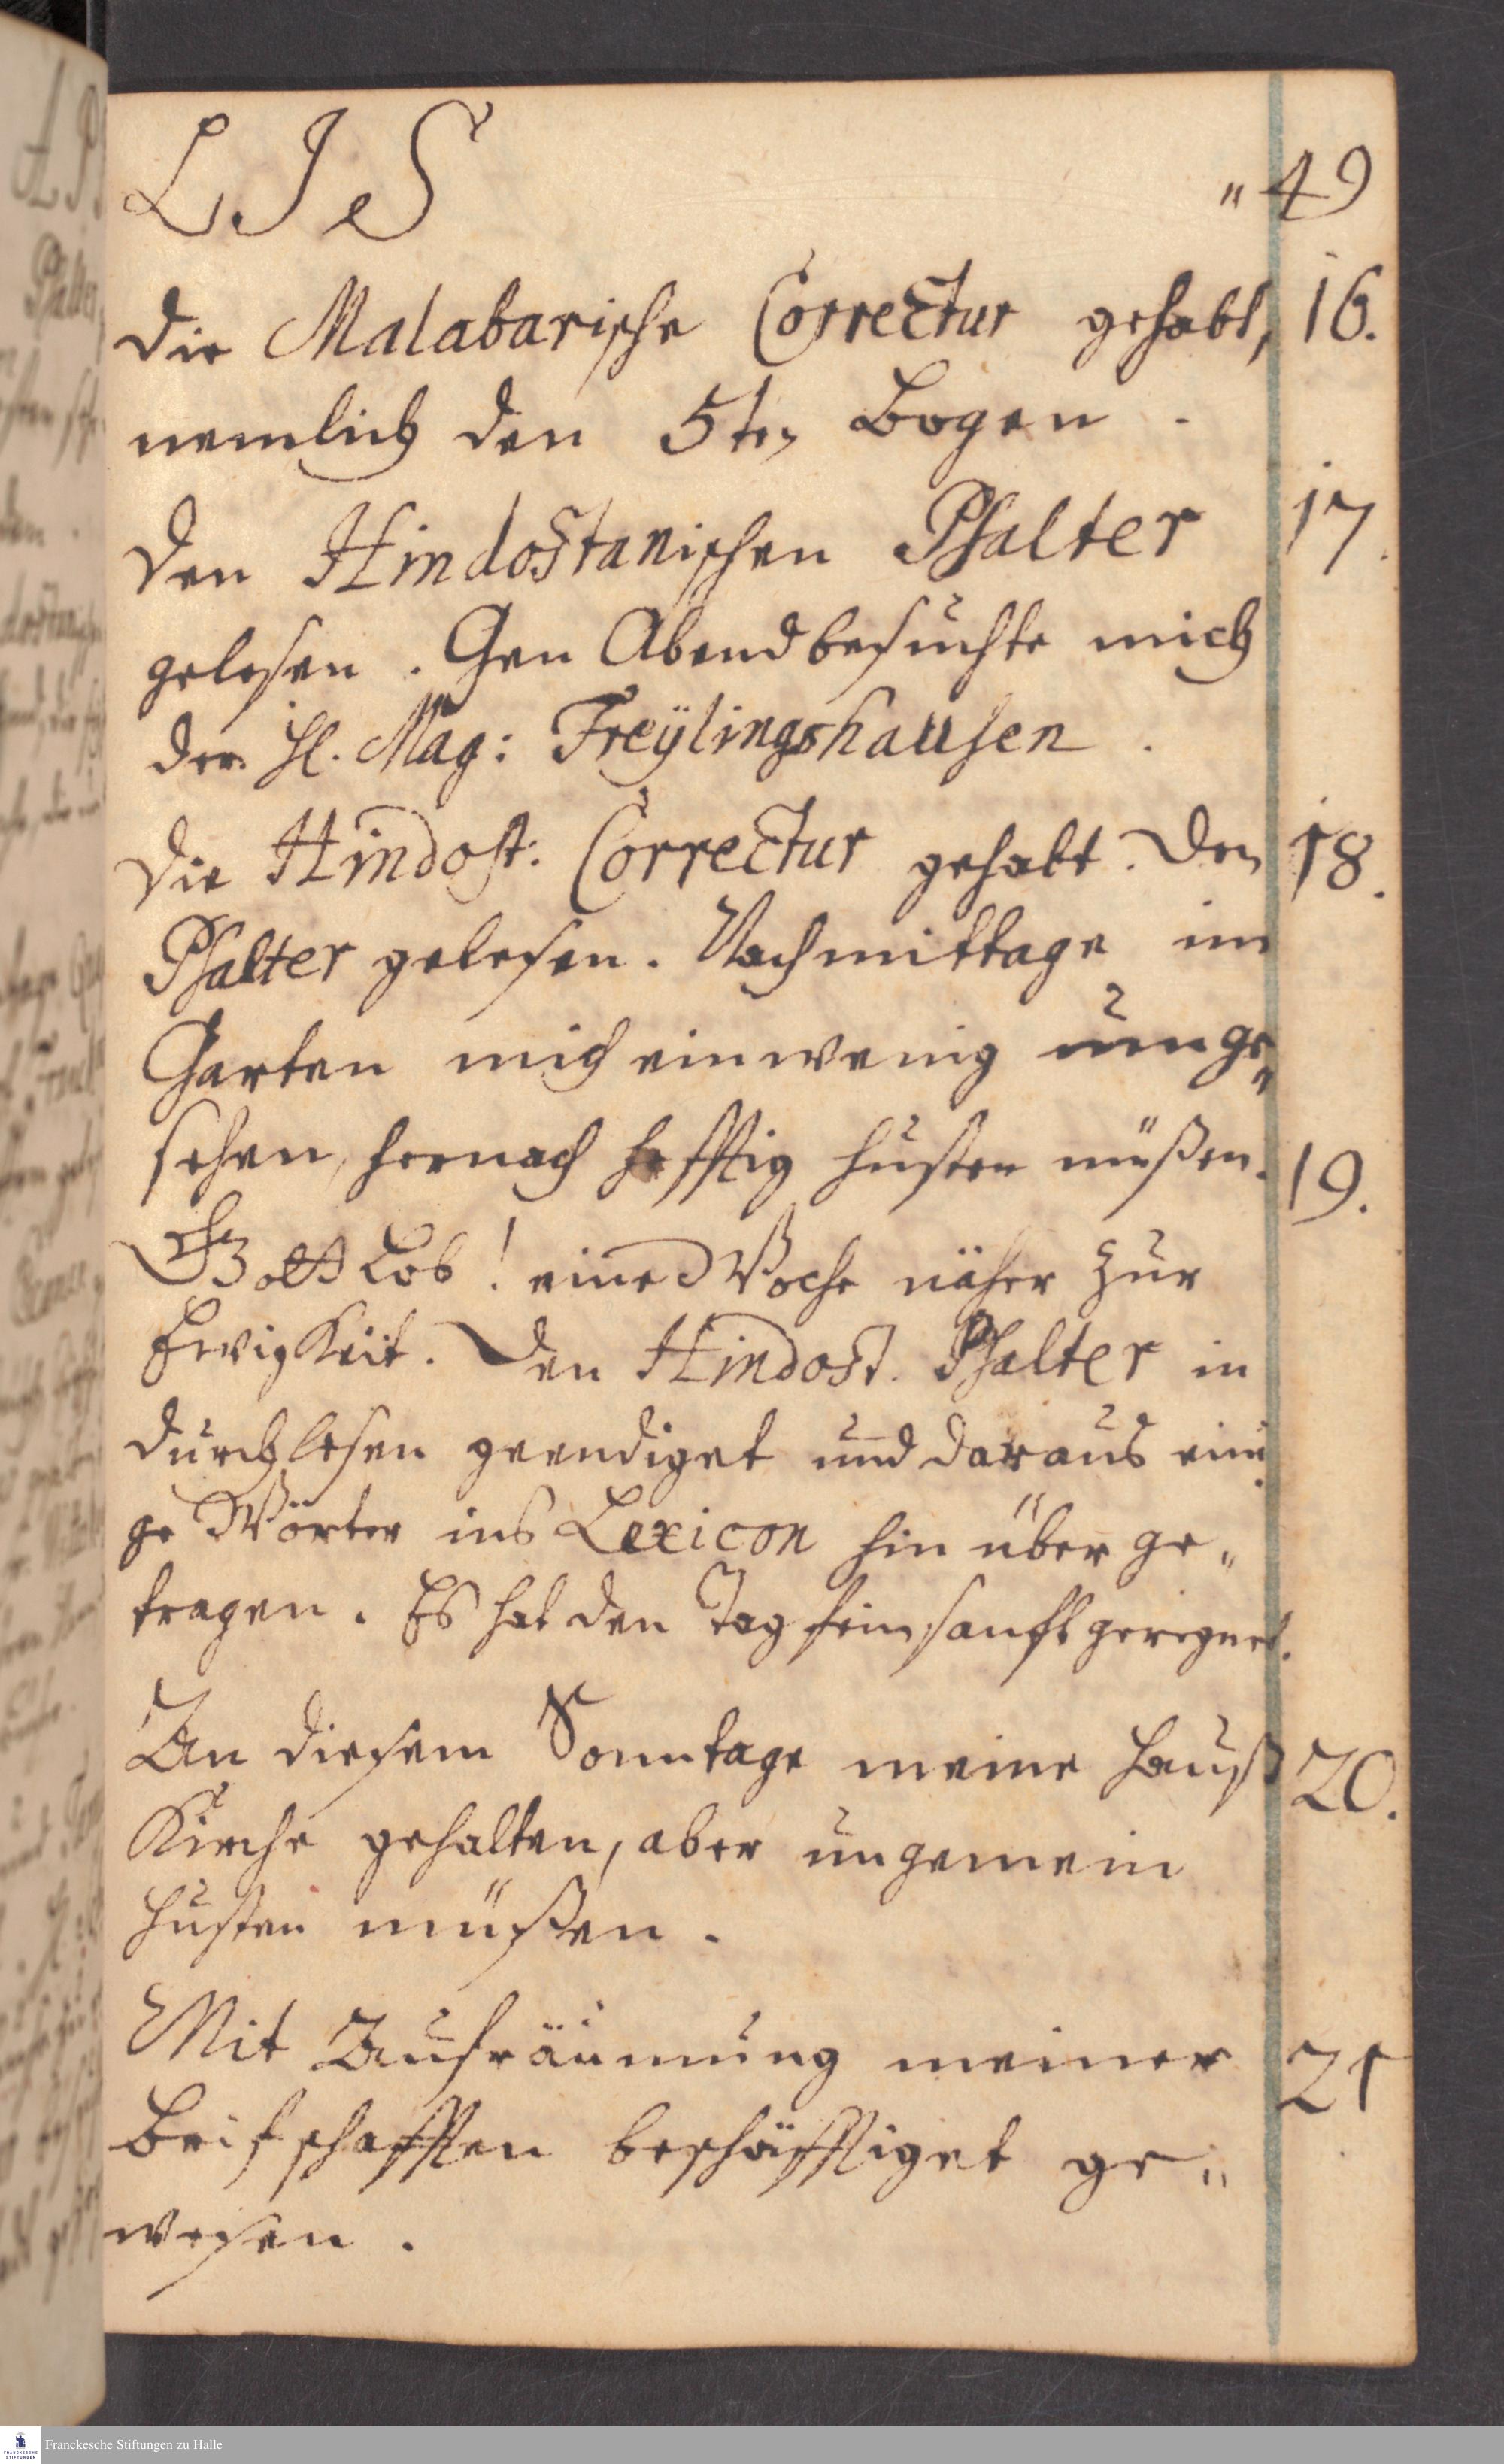 LJS „ 49
die Malabarische Correctur gehabt, 16.
nemlich den 5ten Bogen.
den Hindostanischen Psalter 17.
gelesen. Gen Abend besuchte mich
der H. Mag: Freÿlingshausen.
die Hindost: Correctur gehabt. Den 18.
Psalter gelesen. Nachmittage im
Garten mich ein wenig umge„
sehen, hernach hefftig husten müßen. 19.
Gott Lob! eine Woche näher zur
Ewigkeit. Den Hindost. Psalter in
durchlesen geendiget und daraus eini
ge Wörter ins Lexicon hin über ge„
tragen. Es hat den Tag fein sanfft geregnet.
An diesem Sonntage meine Hauß 20.
Kirche gehalten, aber ungemein
husten müßen.
Mit Aufräumung meiner 21
Briefschafften beschäfftiget ge„
wesen.
Franckesche Stiftungen zu Halle